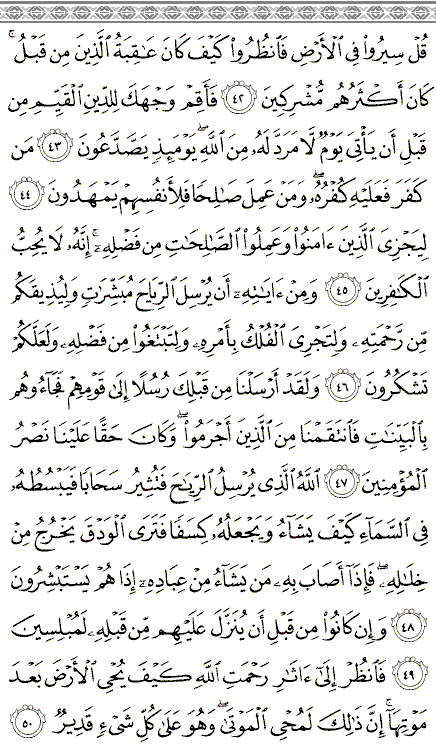 قُلۡ سِيرُواْ فِي ٱلۡأَرۡضِ فَٱنظُرُواْ كَيۡفَ كَانَ عَٰقِبَةُ ٱلَّذِينَ مِن قَبۡلُۚ
كَانَ أَكۡثَرُهُم مُّشۡرِكِينَ ٤٢ فَأَقِمۡ وَجۡهَكَ لِلدِّينِ ٱلۡقَيِّمِ مِن
قَبۡلِ أَن يَأۡتِيَ يَوۡمٞ لَّا مَرَدَّ لَهُۥ مِنَ ٱللَّهِۖ يَوۡمَئِذٖ يَصَّدَّعُونَ ٤٣ مَن
كَفَرَ فَعَلَيۡهِ كُفۡرُهُۥۖ وَمَنۡ عَمِلَ صَٰلِحٗا فَلِأَنفُسِهِمۡ يَمۡهَدُونَ ٤٤
لِيَجۡزِيَ ٱلَّذِينَ ءَامَنُواْ وَعَمِلُواْ ٱلصَّٰلِحَٰتِ مِن فَضۡلِهِۦٓۚ إِنَّهُۥ لَا يُحِبُّ
ٱلۡكَٰفِرِينَ ٤٥ وَمِنۡ ءَايَٰتِهِۦٓ أَن يُرۡسِلَ ٱلرِّيَاحَ مُبَشِّرَٰتٖ وَلِيُذِيقَكُم
مِّن رَّحۡمَتِهِۦ وَلِتَجۡرِيَ ٱلۡفُلۡكُ بِأَمۡرِهِۦ وَلِتَبۡتَغُواْ مِن فَضۡلِهِۦ وَلَعَلَّكُمۡ
تَشۡكُرُونَ ٤٦ وَلَقَدۡ أَرۡسَلۡنَا مِن قَبۡلِكَ رُسُلًا إِلَىٰ قَوۡمِهِمۡ فَجَآءُوهُم
بِٱلۡبَيِّنَٰتِ فَٱنتَقَمۡنَا مِنَ ٱلَّذِينَ أَجۡرَمُواْۖ وَكَانَ حَقًّا عَلَيۡنَا نَصۡرُ
ٱلۡمُؤۡمِنِينَ ٤٧ ٱللَّهُ ٱلَّذِي يُرۡسِلُ ٱلرِّيَٰحَ فَتُثِيرُ سَحَابٗا فَيَبۡسُطُهُۥ
فِي ٱلسَّمَآءِ كَيۡفَ يَشَآءُ وَيَجۡعَلُهُۥ كِسَفٗا فَتَرَى ٱلۡوَدۡقَ يَخۡرُجُ مِنۡ
خِلَٰلِهِۦۖ فَإِذَآ أَصَابَ بِهِۦ مَن يَشَآءُ مِنۡ عِبَادِهِۦٓ إِذَا هُمۡ يَسۡتَبۡشِرُونَ
٤٨ وَإِن كَانُواْ مِن قَبۡلِ أَن يُنَزَّلَ عَلَيۡهِم مِّن قَبۡلِهِۦ لَمُبۡلِسِينَ
٤٩ فَٱنظُرۡ إِلَىٰٓ ءَاثَٰرِ رَحۡمَتِ ٱللَّهِ كَيۡفَ يُحۡيِ ٱلۡأَرۡضَ بَعۡدَ
مَوۡتِهَآۚ إِنَّ ذَٰلِكَ لَمُحۡيِ ٱلۡمَوۡتَىٰۖ وَهُوَ عَلَىٰ كُلِّ شَيۡءٖ قَدِيرٞ ٥٠